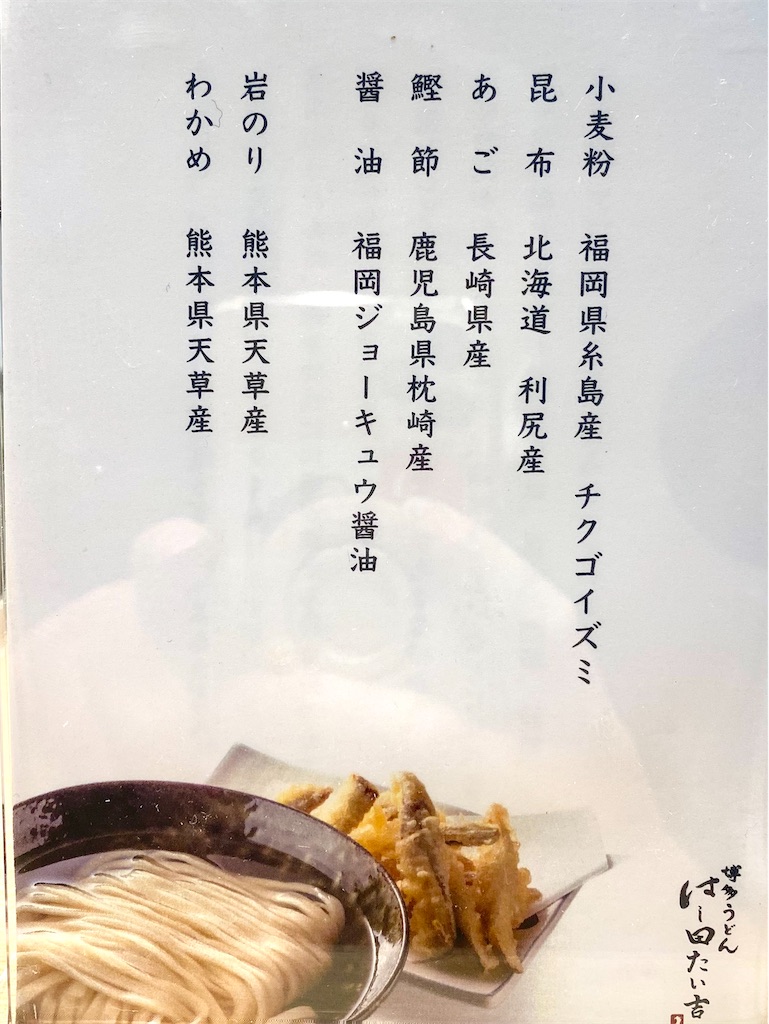 小麦粉 福岡県糸島産 チクゴイズミ
昆布 北海道 利尻産
あご 長崎県産
鰹節 鹿児島県枕崎産
醤油 福岡ジョーキュウ醤油
岩のり 熊本県天草産
わかめ 熊本県天草産
博多うどん
はし田たい吉